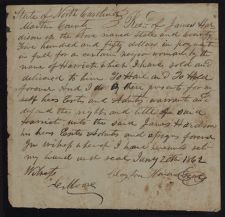 State of North Carolina
County Rec. of James Har
dison of the above named State and County
Five hundred and fifty dollars in payment
in full for a certain negroe woman by the
name of Harriett which I have sold and
delivered to him To Hail and To Hold
forever And I do by these presents for my
self heirs Exrts and Admtrs warrant and
defend the right and title of said
Harriett unto the said James Hardison
his heirs Exrts Admtrs and assigns forever
In witness where of I have hereunto set
my hand and seal Jany 20th 1862
Witness